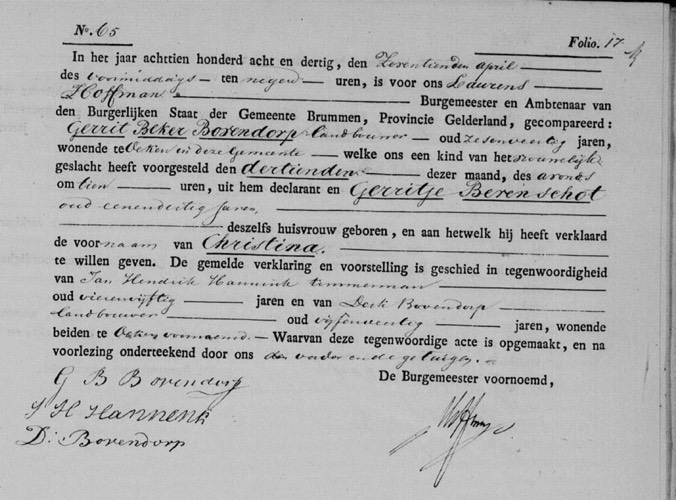 No. 65
Folio. 17
In het jaar achttien honderd acht en dertig, den Zeventienden april
des voormiddags ten negen uren, is voor ons Laurens
Hoffman Burgemeester en Ambtenaar van
den Burgerlijken Staat der Gemeente Brummen, Provincie Gelderland, gecompareerd:
Gerrit Beker Bovendorp landbouwer oud zesenveertig jaren,
wonende te Oeken in deze Gemeente welke ons een kind van het vrouwelijk
geslacht heeft voorgesteld den dertienden dezer maand, des avonds
om tien uren, uit hem declarant en Gerritje Berenschot
oud eenendertig jaren,
deszelfs huisvrouw geboren, en aan hetwelk hij heeft verklaard
de voornaam van Christina.
te willen geven. De gemelde verklaring en voorstelling is geschied in tegenwoordigheid
van Jan Hendrik Hannink timmerman
oud vierenvijftig jaren en van Derk Bovendorp
landbouwer oud vijfenveertig jaren, wonende
beiden te Oeken voornoemd. Waarvan deze tegenwoordige acte is opgemaakt, en na
voorlezing onderteekend door ons den vader en de getuigen.
De Burgemeester voornoemd,
G B Bovendorp
J H HANNENK
Hoffman
D: Bovendorp